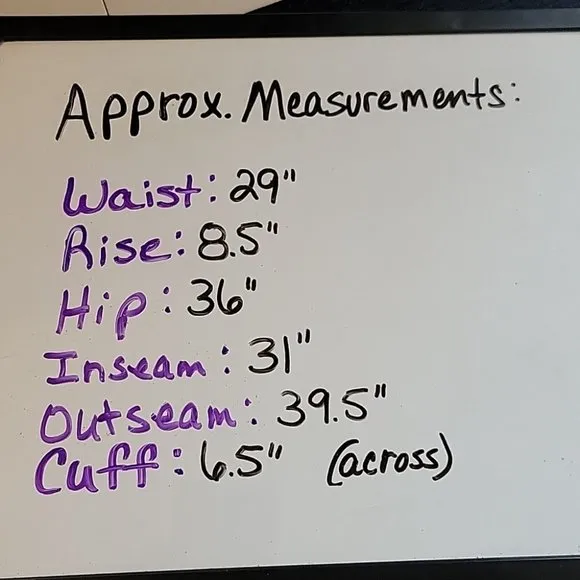 Approx. Measurements:
Waist: 29"
Rise: 8.5"
Hip: 36"
Inseam: 31"
Outseam: 39.5"
Cuff: 6.5" (across)